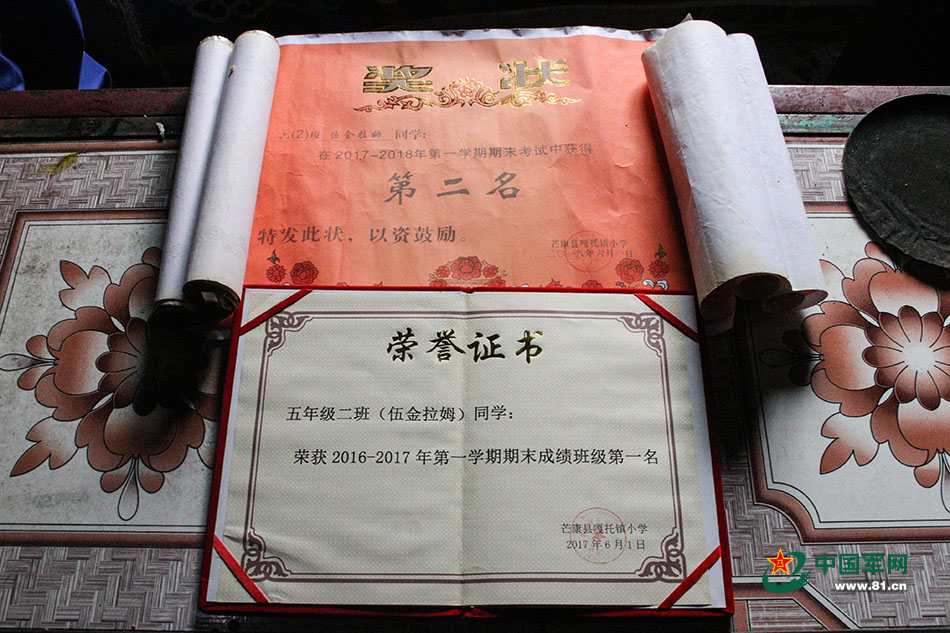 奖状
六(2)班 伍金拉姆 同学:
在2017-2018年第一学期期末考试中获得
第二名
特发此状，以资鼓励。
芒康县嘎托镇小学
二〇一八年六月一日
荣誉证书
五年级二班（伍金拉姆）同学：
荣获2016-2017年第一学期期末成绩班级第一名
芒康县嘎托镇小学
2017年6月1日
中国军网
www.81.cn